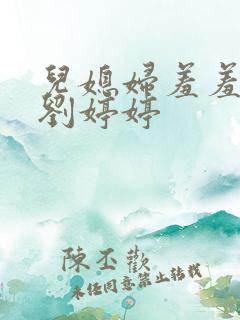 兒媳婦羞羞
劉婷婷
陳丕歡
未經同意禁止轉載